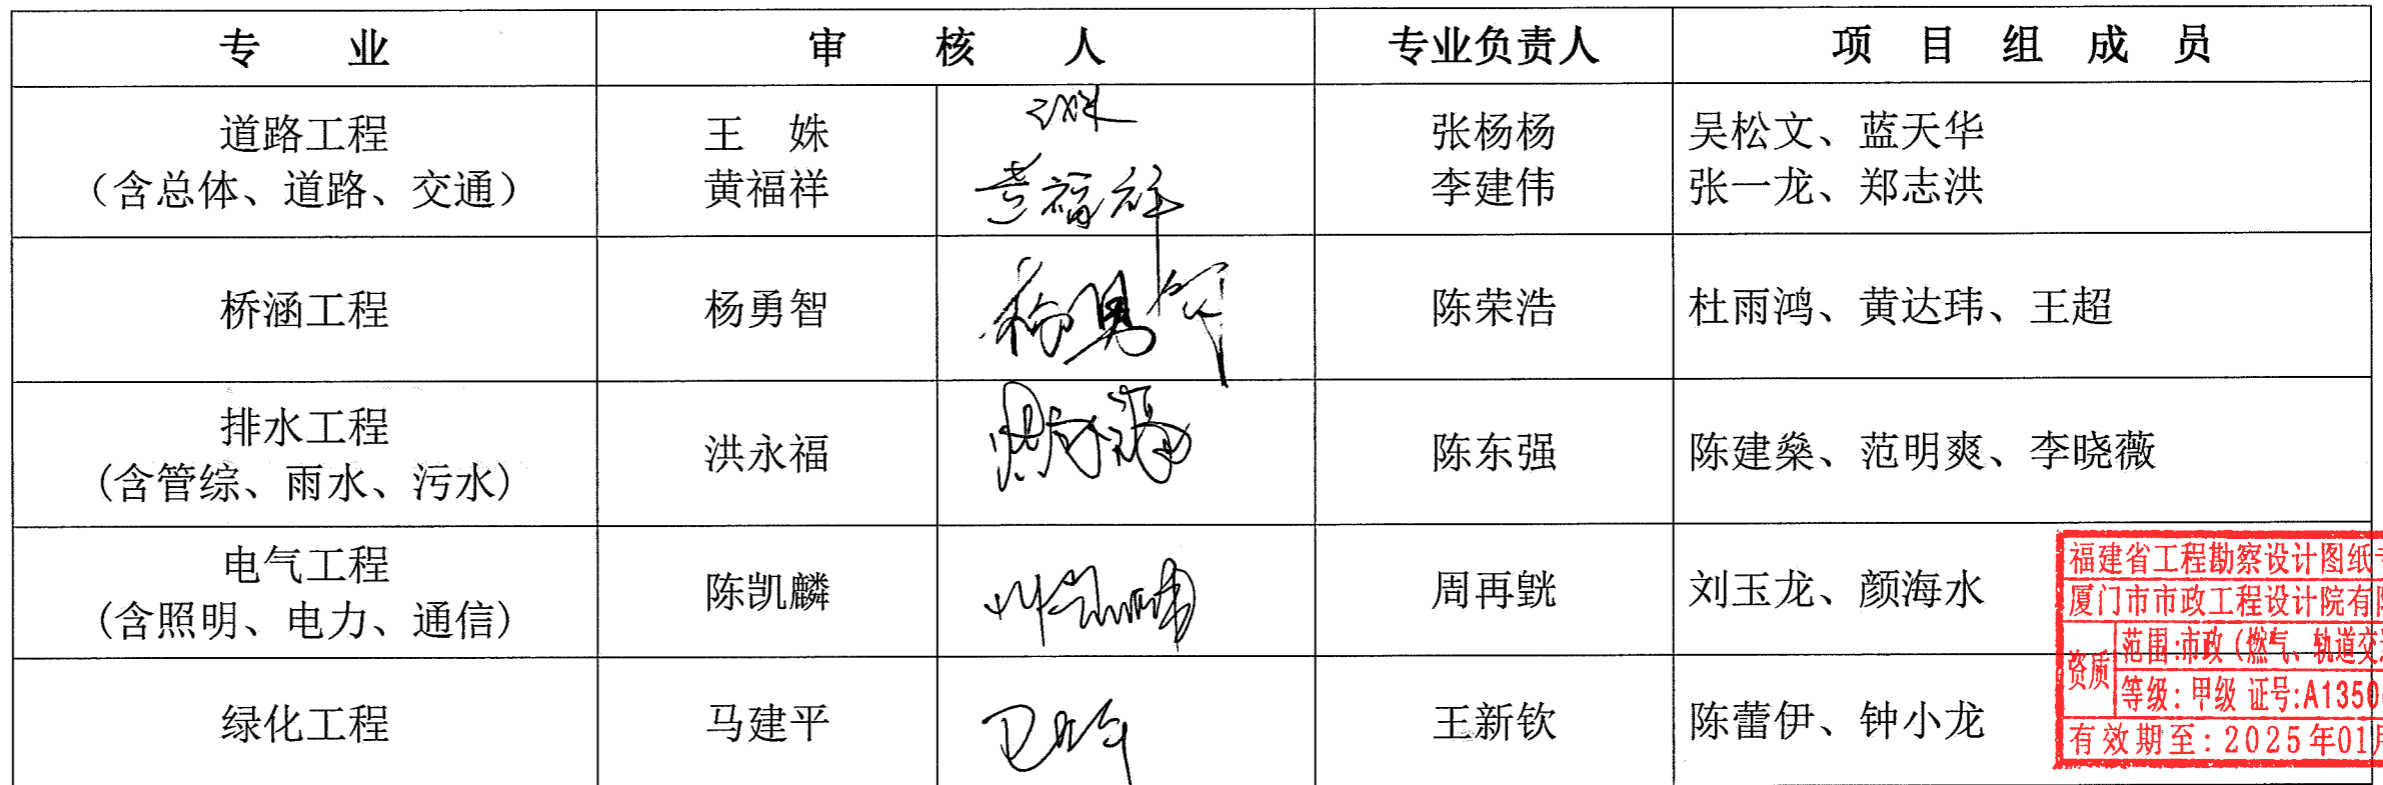 专 业 审 核 人 专业负责人 项 目 组 成 员
道路工程 王 姝 王姝 张杨杨 吴松文、蓝天华
（含总体、道路、交通） 黄福祥 黄福祥 李建伟 张一龙、郑志洪
桥涵工程 杨勇智 杨勇智 陈荣浩 杜雨鸿、黄达玮、王超
排水工程
(含管综、雨水、污水) 洪永福 洪永福 陈东强 陈建燊、范明爽、李晓薇
电气工程
(含照明、电力、通信) 陈凯麟 周再 刘玉龙、颜海水
绿化工程 马建平 王新钦 陈蕾伊、钟小龙
福建省工程勘察设计图纸专
厦门市市政工程设计院有限
资质 范围:市政（燃气、轨道交
等级: 甲级 证号:A1350
有效期至: 2025年01月